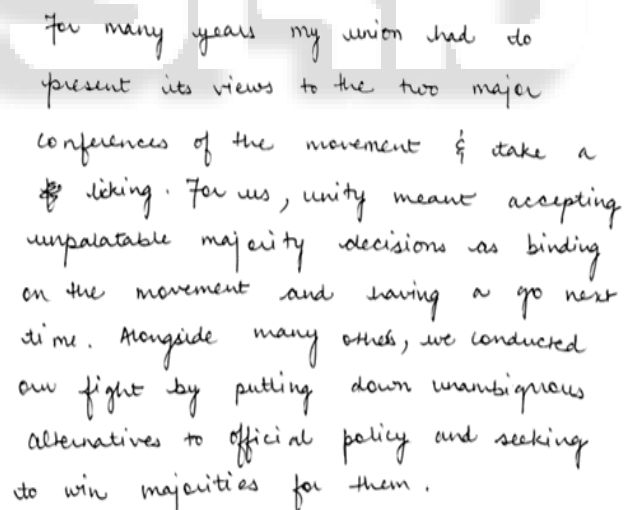 For many years my union had to
present its views to the two major
conferences of the movement & take a
licking. For us, unity meant accepting
unpalatable majority decisions as binding
on the movement and having a go next
time. Alongside many others, we conducted
our fight by putting down unambiguous
alternatives to official policy and seeking
to win majorities for them.